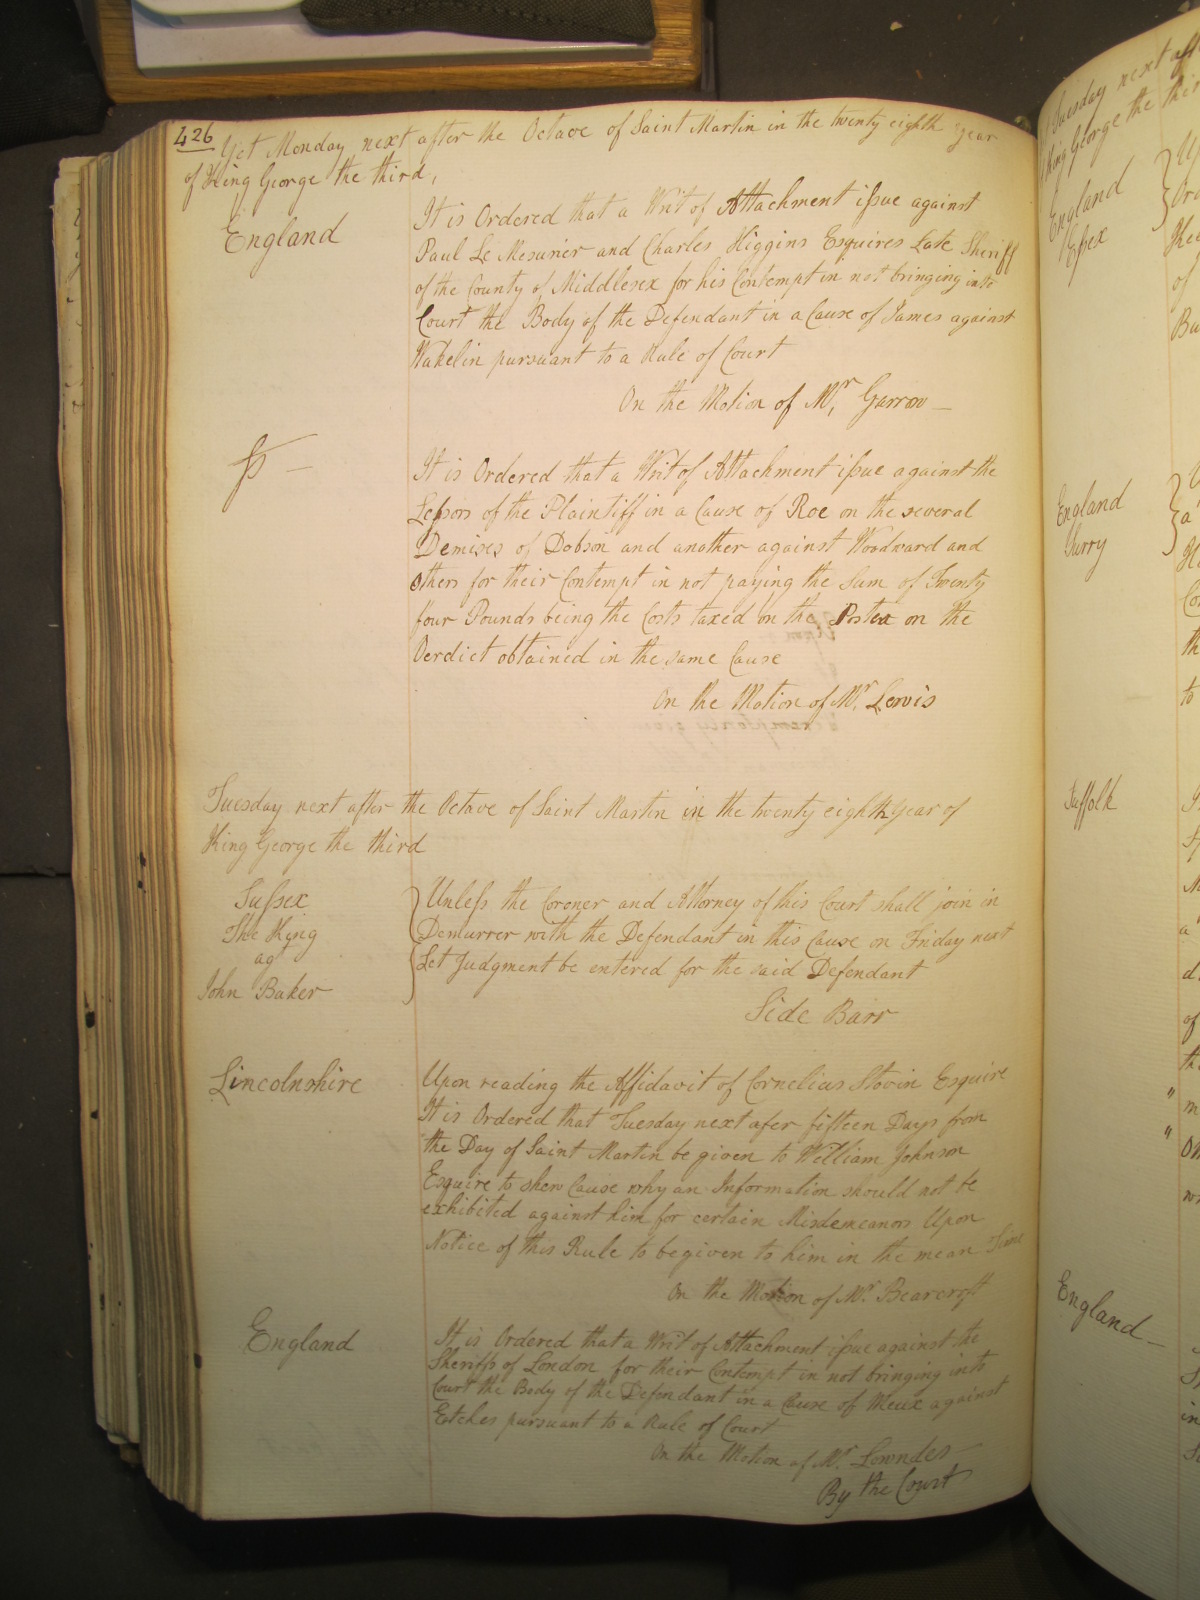 426
Yet Monday next after the Octave of Saint Martin in the twenty eighth year
of King George the third,
England
It is Ordered that a Writ of Attachment issue against
Paul Le Mesurier and Charles Higgins Esquires Late Sheriff
of the County of Middlesex for his Contempt in not bringing into
Court the Body of the Defendant in a Cause of James against
Wakelin pursuant to a Rule of Court
On the Motion of Mr. Garrow
ss
It is Ordered that a Writ of Attachment issue against the
Lessors of the Plaintiff in a Cause of Roe on the several
Demises of Dobson and another against Woodward and
others for their Contempt in not paying the Sum of Twenty
four Pounds being the Costs taxed on the Postea on the
Verdict obtained in the same Cause
On the Motion of Mr. Lewis
Tuesday next after the Octave of Saint Martin in the twenty eighth Year of
King George the third
Sussex
The King
ag
John Baker
Unless the Coroner and Attorney of this Court shall join in
Demurrer with the Defendant in this Cause on Friday next
Let Judgment be entered for the said Defendant
Side Barr
Lincolnshire
Upon reading the Affidavit of Cornelius Stovin Esquire
It is Ordered that Tuesday next afer fifteen Days from
the Day of Saint Martin be given to William Johnson
Esquire to shew Cause why an Information should not be
exhibited against him for certain Misdemeanors Upon
Notice of this Rule to be given to him in the mean Time
On the Motion of Mr. Bearcroft
England
It is Ordered that a Writ of Attachment issue against the
Sheriffs of London for their Contempt in not bringing into
Court the Body of the Defendant in a Cause of Meux against
Etches pursuant to a Rule of Court
On the Motion of Mr. Lowndes
By the Court
Tuesday next aft
King George the thir
England
Essex
England
Surry
Suffolk
England